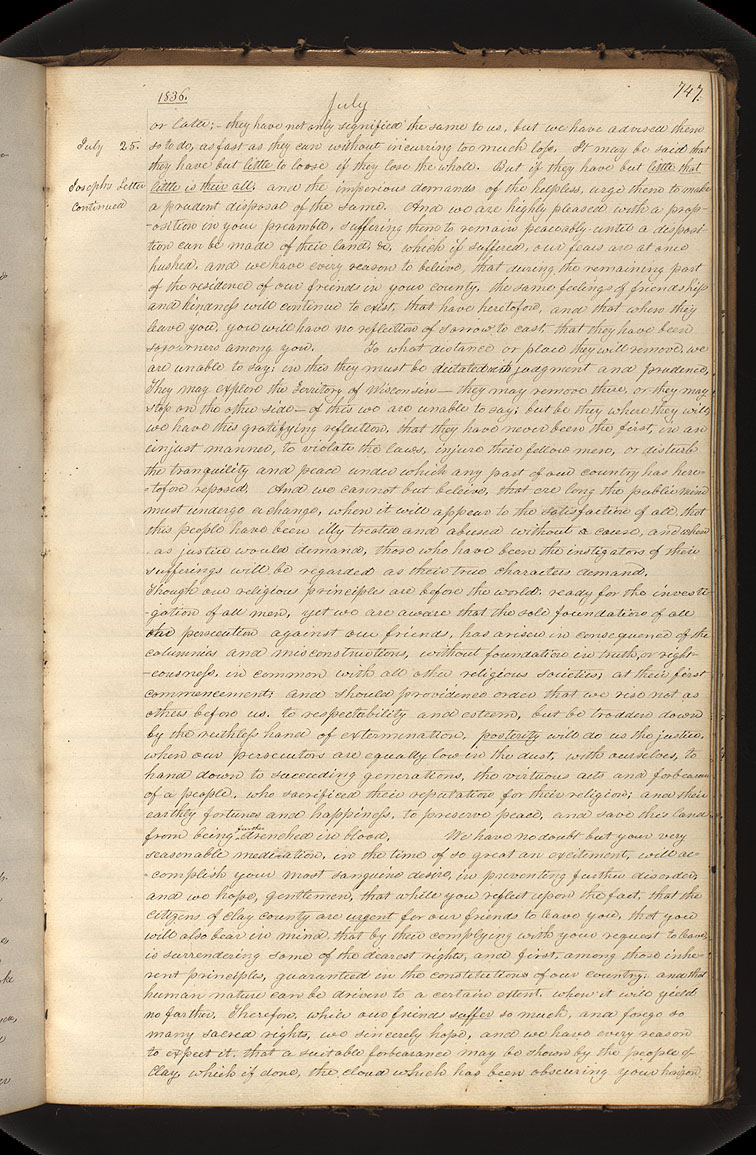 1836.
July
747.
or later;– they have not only signified the same to us, but we have advised them
July 25.
so to do, as fast as they can without incurring too much loss. It may be said that
they have but little to loose if they lose the whole. But if they have but little that
Josephs Letter
little is their all, and the imperious demands of the helpless, urge them to make
Continued
a prudent disposal of the same. And we are highly pleased with a prop-
-osition in your preamble, suffering them to remain peaceably until a disposi-
tion can be made of their land, &c, which if suffered, our fears are at once
hushed, and we have every reason to beleive, that during the remaining part
of the residence of our friends in your county, the same feelings of friendship
and kindness will continue to exist, that have heretofore, and that when they
leave you, you will have no reflection of sorrow to cast, that they have been
sojourners among you. To what distance or place they will remove, we
are unable to say; in this they must be dictated with judgment and prudence,
They may explore the Territory of Wisconsin— they may remove there, or they may
stop on the other side— of this we are unable to say; but be they where they will,
we have this gratifying reflection, that they have never been the first, in an
unjust manner, to violate the laws, injure their fellow men, or disturb
the tranquility and peace under which any part of our country has here-
-tofore reposed. And we cannot but beleive, that ere long the public mind
must undergo a change, when it will appear to the satisfaction of all, that
this people have been illy treated and abused without a cause, and when
as justice would demand, those who have been the instigators of their
sufferings will be regarded as their true characters demand.
Though our religious principles are before the world, ready for the investi-
-gation of all men, yet we are aware that the sole foundation of all
the persecution against our friends, has arisen in consequence of the
calumnies and misconstructions, without foundation in truth, or right-
-eousness, in common with all other religious societies, at their first
commencement; and should providence order that we rise not as
others before us, to respectability and esteem, but be trodden down
by the ruthless hand of extermination, posterity will do us the justice,
when our persecutors are equally low in the dust, with ourselves, to
hand down to succeeding generations, the virtuous acts and forbearance
of a people, who sacrificed their reputation for their religion; and their
earthly fortunes and happiness, to preserve peace, and save this land
from being further drenched in blood. We have no doubt but your very
seasonable mediation, in the time of so great an excitement, will ac-
-complish your most sanguine desire, in preventing further disorder,
and we hope, gentlemen, that while you reflect upon the fact, that the
citizens of Clay county are urgent for our friends to leave you, that you
will also bear in mind, that by their complying with your request to leave,
is surrendering some of the dearest rights, and first, among those inhe-
rent principles, guaranteed in the constitutions of our country; and that
human nature can be driven to a certain extent, when it will yield
no farther. Therefore, while our friends suffer so much, and forego so
many sacred rights, we sincerely hope, and we have every reason
to expect it, that a suitable forbearance may be shown by the people of
Clay, which if done, the cloud which has been obscuring your horizon